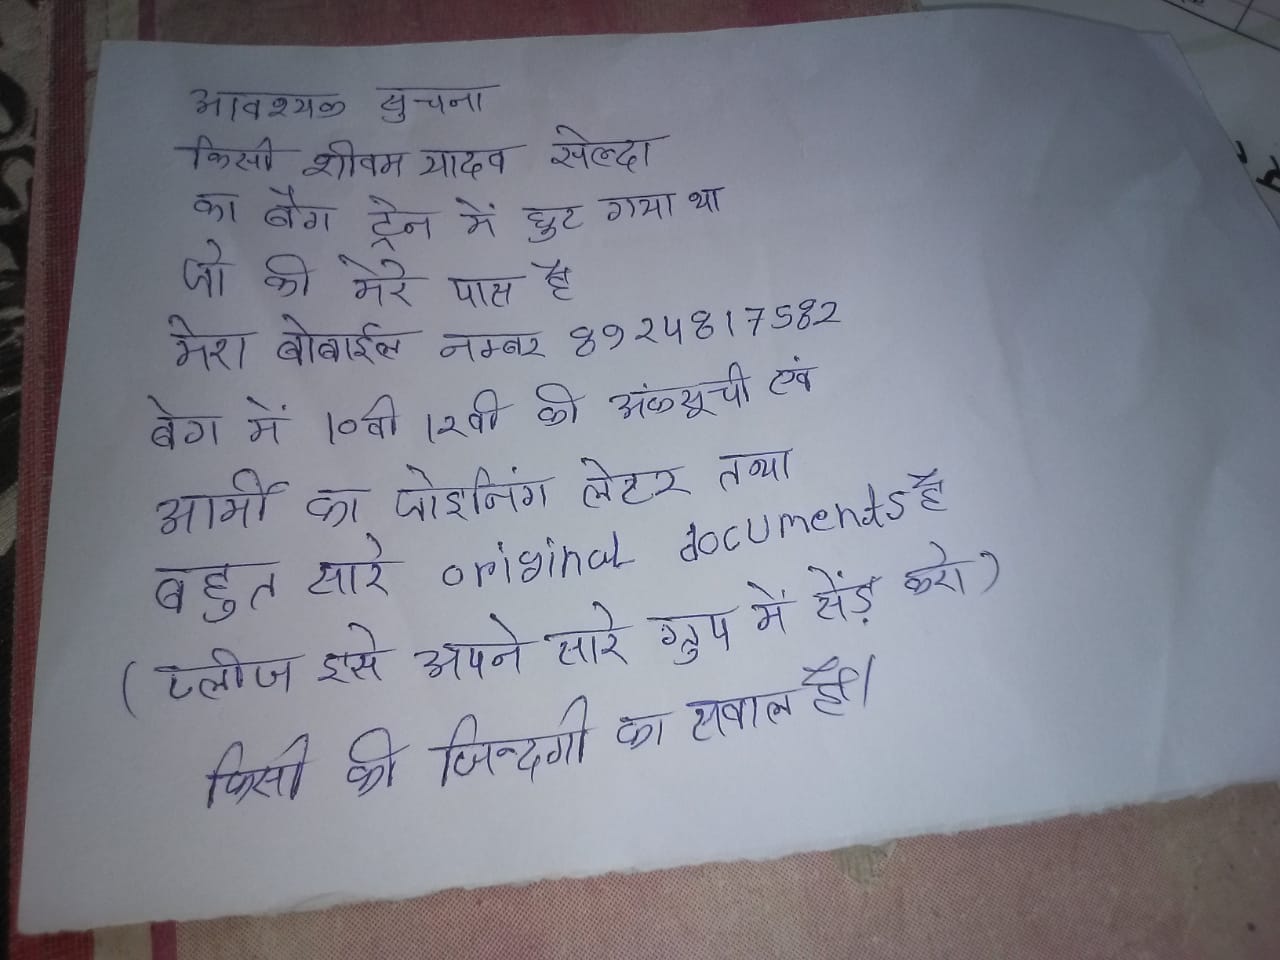 आवश्यक सुचना
किसी शीवम यादव सेल्दा
का बैग ट्रेन में छुट गया था
जो की मेरे पास है
मेरा बोबाईल नम्बर 8924817582
बेग में 10वी 12वी की अंकसूची एवं
आर्मी का जोइनिंग लेटर तथा
बहुत सारे original documents है
(प्लीज इसे अपने सारे ग्रुप में सेंड़ करो)
किसी की जिन्दगी का सवाल है।